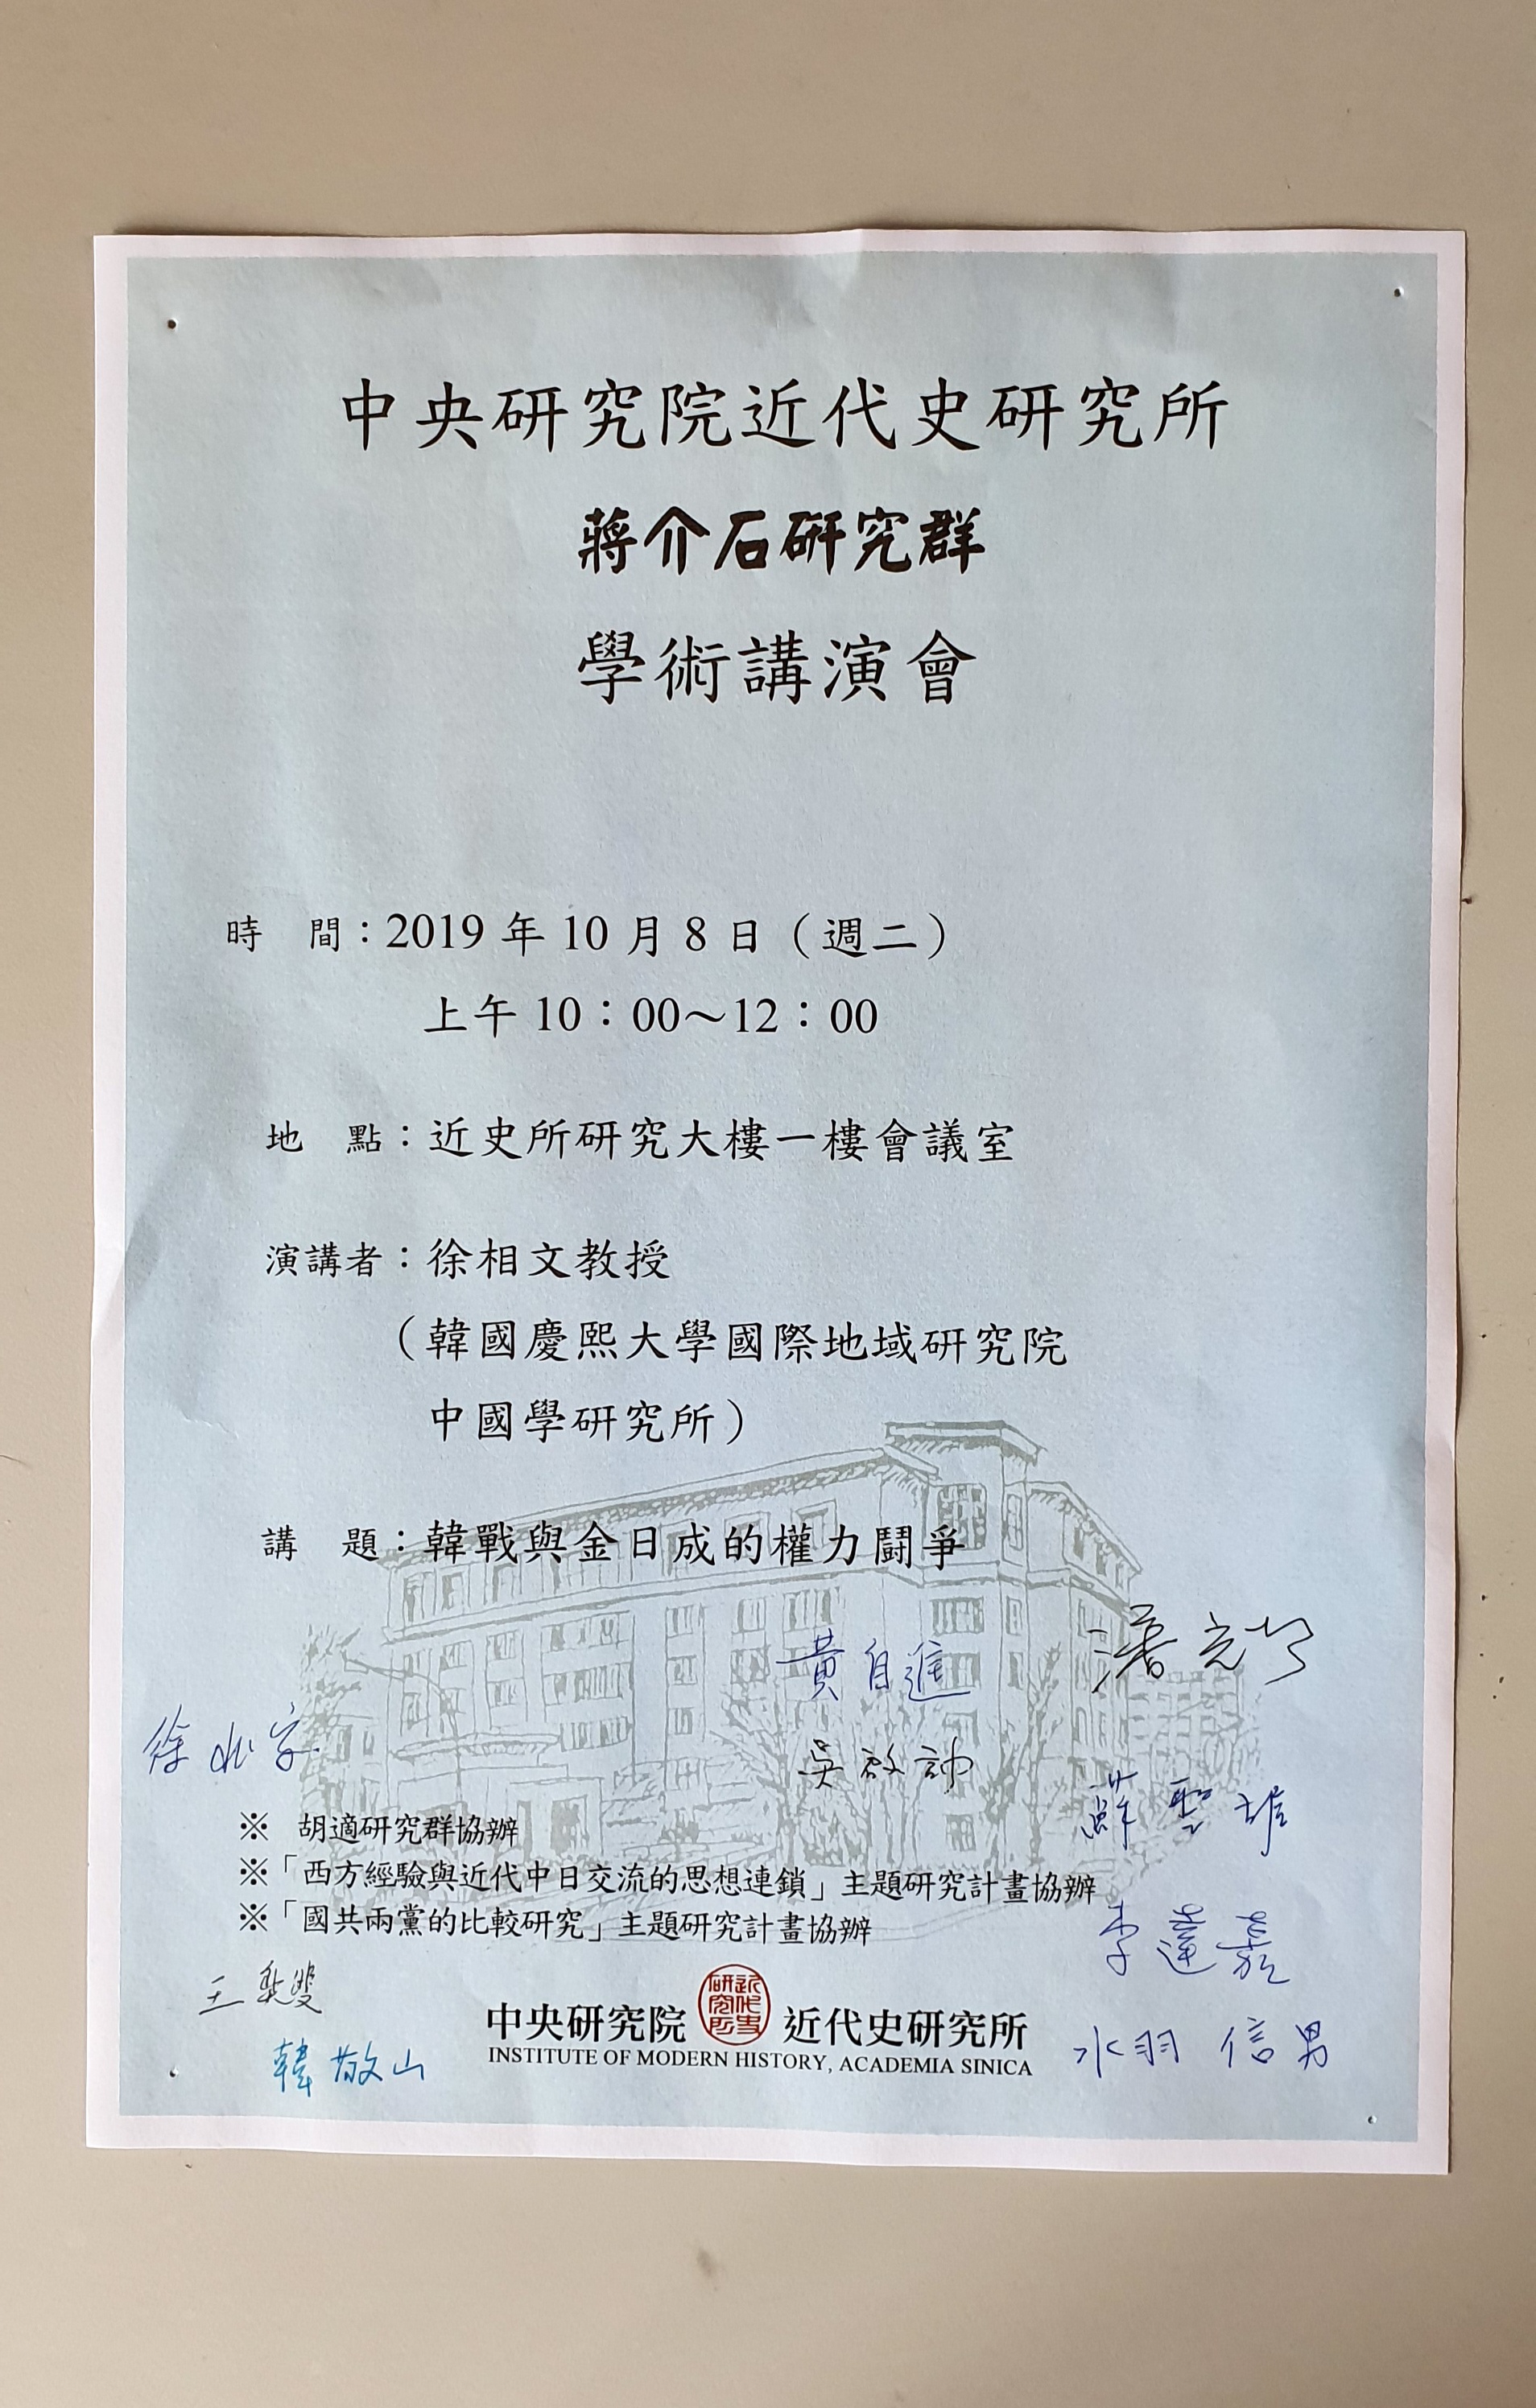 中央研究院近代史研究所
蔣介石研究群
學術講演會
時　間：2019 年 10 月 8 日（週二）
上午 10：00～12：00
地　點：近史所研究大樓一樓會議室
演講者：徐相文教授
（韓國慶熙大學國際地域研究院
中國學研究所）
講　題：韓戰與金日成的權力鬪爭
黃自進
潘光哲
徐兆安
吳啟訥
蘇聖雄
※　胡適研究群協辦
※「西方經驗與近代中日交流的思想連鎖」主題研究計畫協辦
※「國共兩黨的比較研究」主題研究計畫協辦
李達嘉
王
中央研究院 近代史研究所 近代史研究所
INSTITUTE OF MODERN HISTORY, ACADEMIA SINICA
韓敬山
水羽 信男